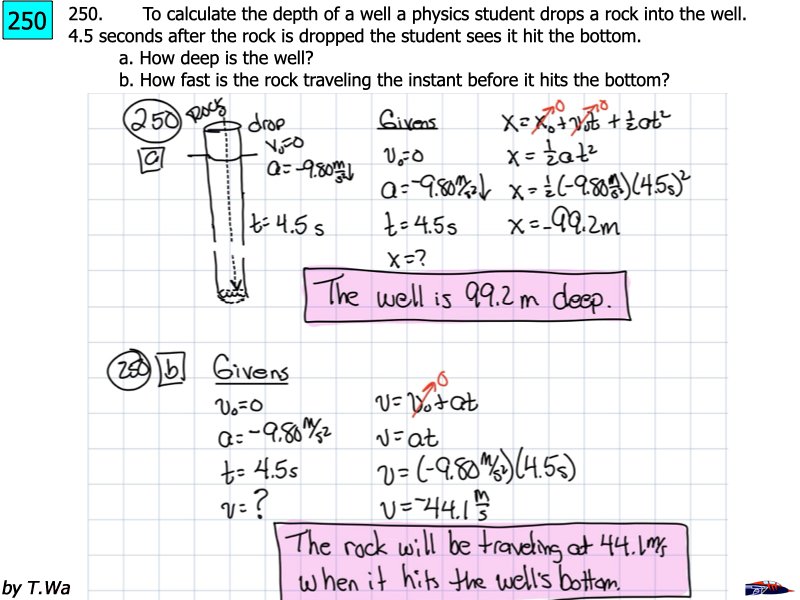 250
250. To calculate the depth of a well a physics student drops a rock into the well.
4.5 seconds after the rock is dropped the student sees it hit the bottom.
a. How deep is the well?
b. How fast is the rock traveling the instant before it hits the bottom?
250
a
Rock
drop
v₀=0
a=-9.80m/s²↓
t=4.5s
Givens
v₀=0
a=-9.80m/s²↓
t=4.5s
x=?
x=x₀+v₀t+½at²
0 0
x=½at²
x=½(-9.80m/s²)(4.5s)²
x=-99.2m
The well is 99.2m deep.
250 b
Givens
v₀=0
a=-9.80m/s²
t=4.5s
v=?
v=v₀+at
0
v=at
v=(-9.80m/s²)(4.5s)
v=-44.1m/s
The rock will be traveling at 44.1m/s
when it hits the well's bottom.
by T.Wa